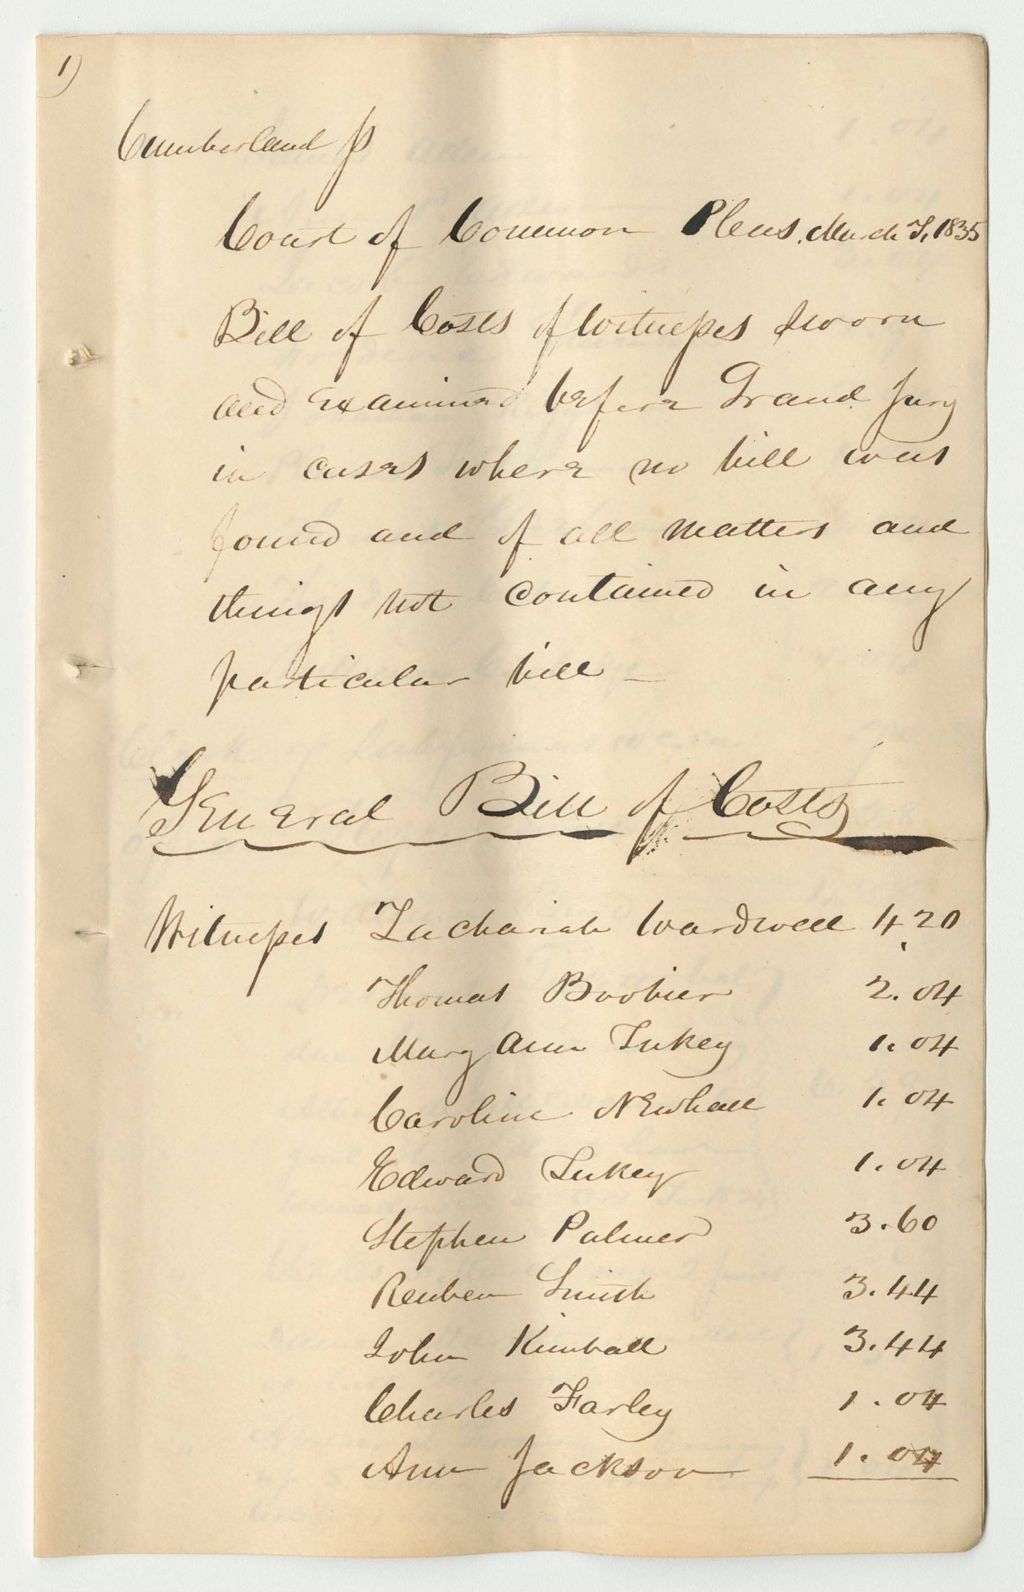 1)
Cumberland ss
Court of Common Pleas. March T, 1835
Bill of Costs of Witnesses sworn
and examined before Grand Jury
in cases where no bill was
found and of all matters and
things not contained in any
particular bill —
General Bill of Costs
Witnesses Zachariah Wardwell 4.20
Thomas Boobier 2.04
Mary Ann Lukey 1.04
Caroline Newhall 1.04
Edward Lukey 1.04
Stephen Palmer 3.60
Reuben Smith 3.44
John Kimball 3.44
Charles Farley 1.04
Ann Jackson 1.04